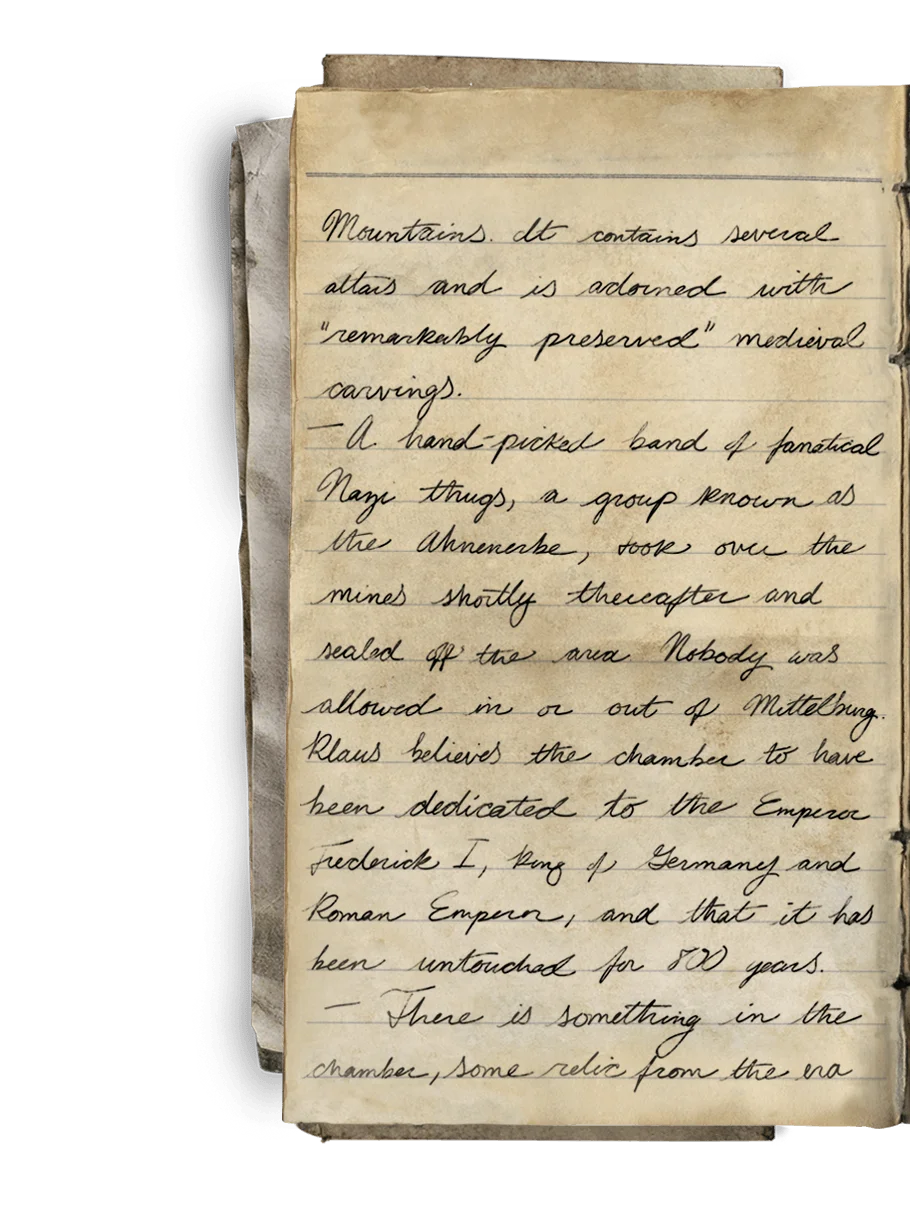 Mountains. It contains several
altars and is adorned with
"remarkably preserved" medieval
carvings.
— A hand-picked band of fanatical
Nazi thugs, a group known as
the Ahnenerbe, took over the
mines shortly thereafter and
sealed off the area. Nobody was
allowed in or out of Mittelburg.
Klaus believes the chamber to have
been dedicated to the Emperor
Frederick I, King of Germany and
Roman Emperor, and that it has
been untouched for 800 years.
— There is something in the
chamber, some relic from the era